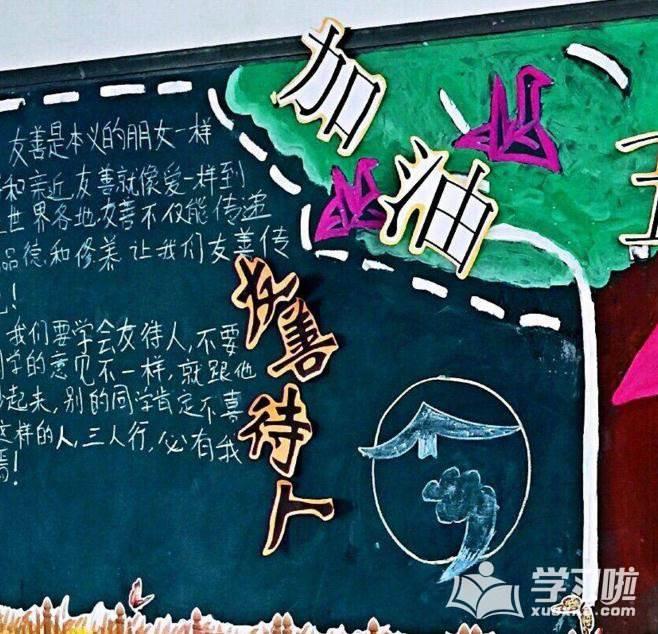 加油
友善是本义的朋友一样
和亲近友善就像爱一样到
世界各地友善不仅能传递
品德和修养让我们友善传
!
我们要学会友待人,不要
同学的意见不一样,就跟他
吵起来,别的同学肯定不喜
这样的人,三人行,必有我
焉!
友善待人
学习啦
xuexila.com